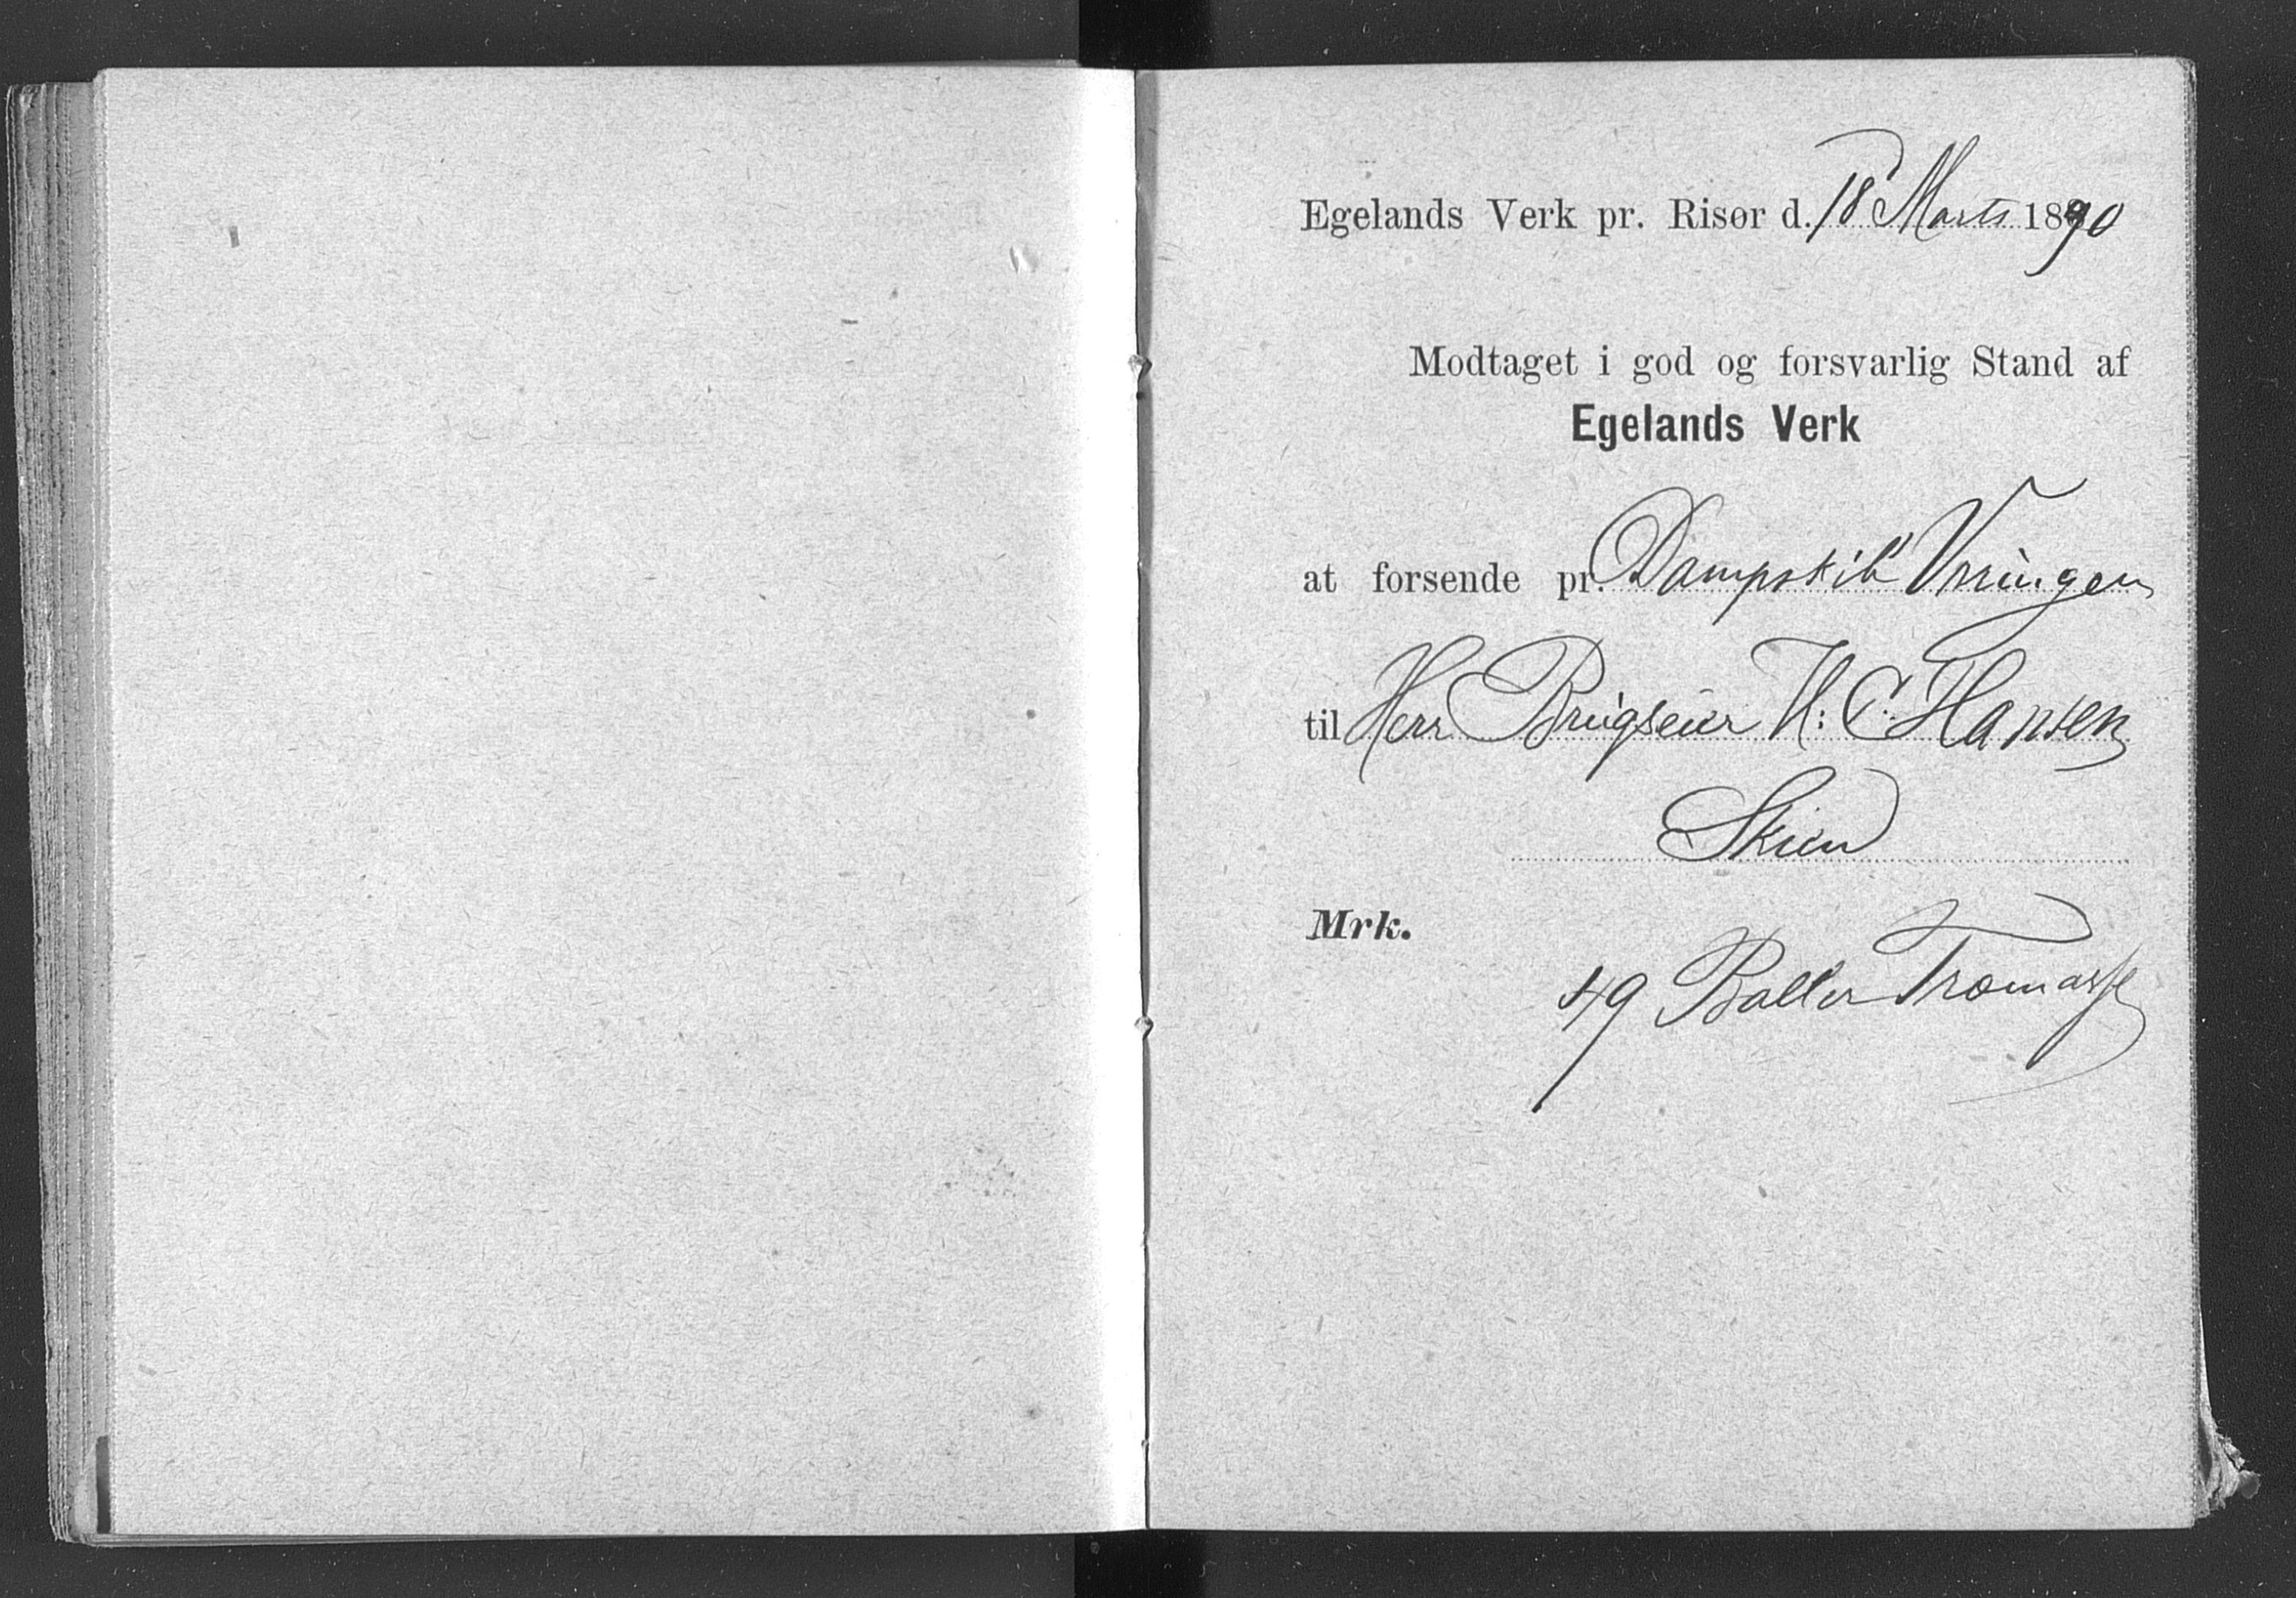 Egelands Verk pr. Risør d. 18 Marts 1890
Modtaget i god og forsvarlig Stand af
Egelands Verk
at forsende pr. Dampskib
til Herr Brugseier H: C. Hansen
Skien
Mrk.
49 Baller Træmasse